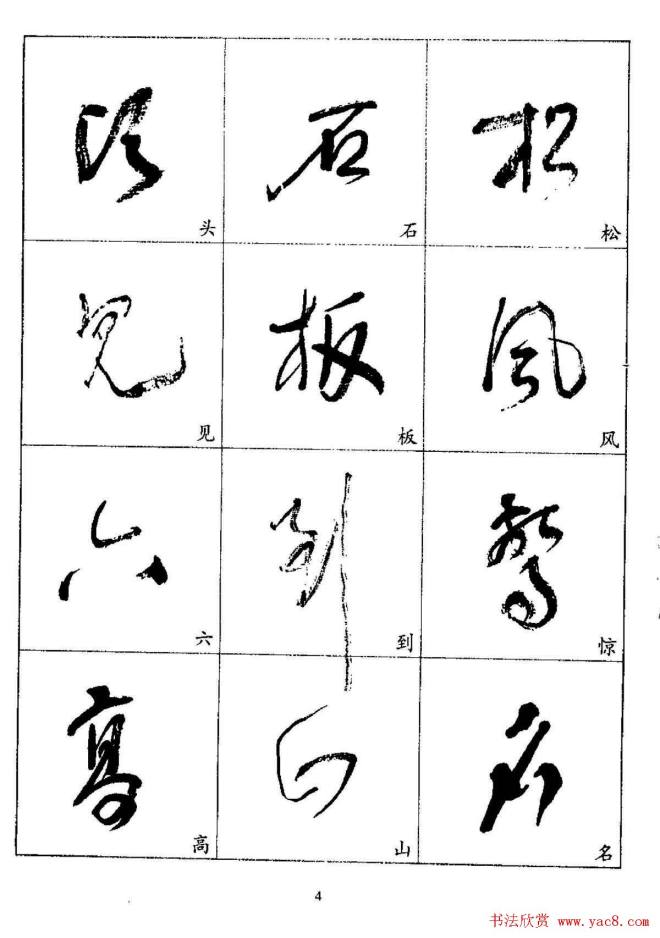 头 石 松
见 板 风
六 到 惊
高 山 名
4
书法欣赏 www.yac8.com